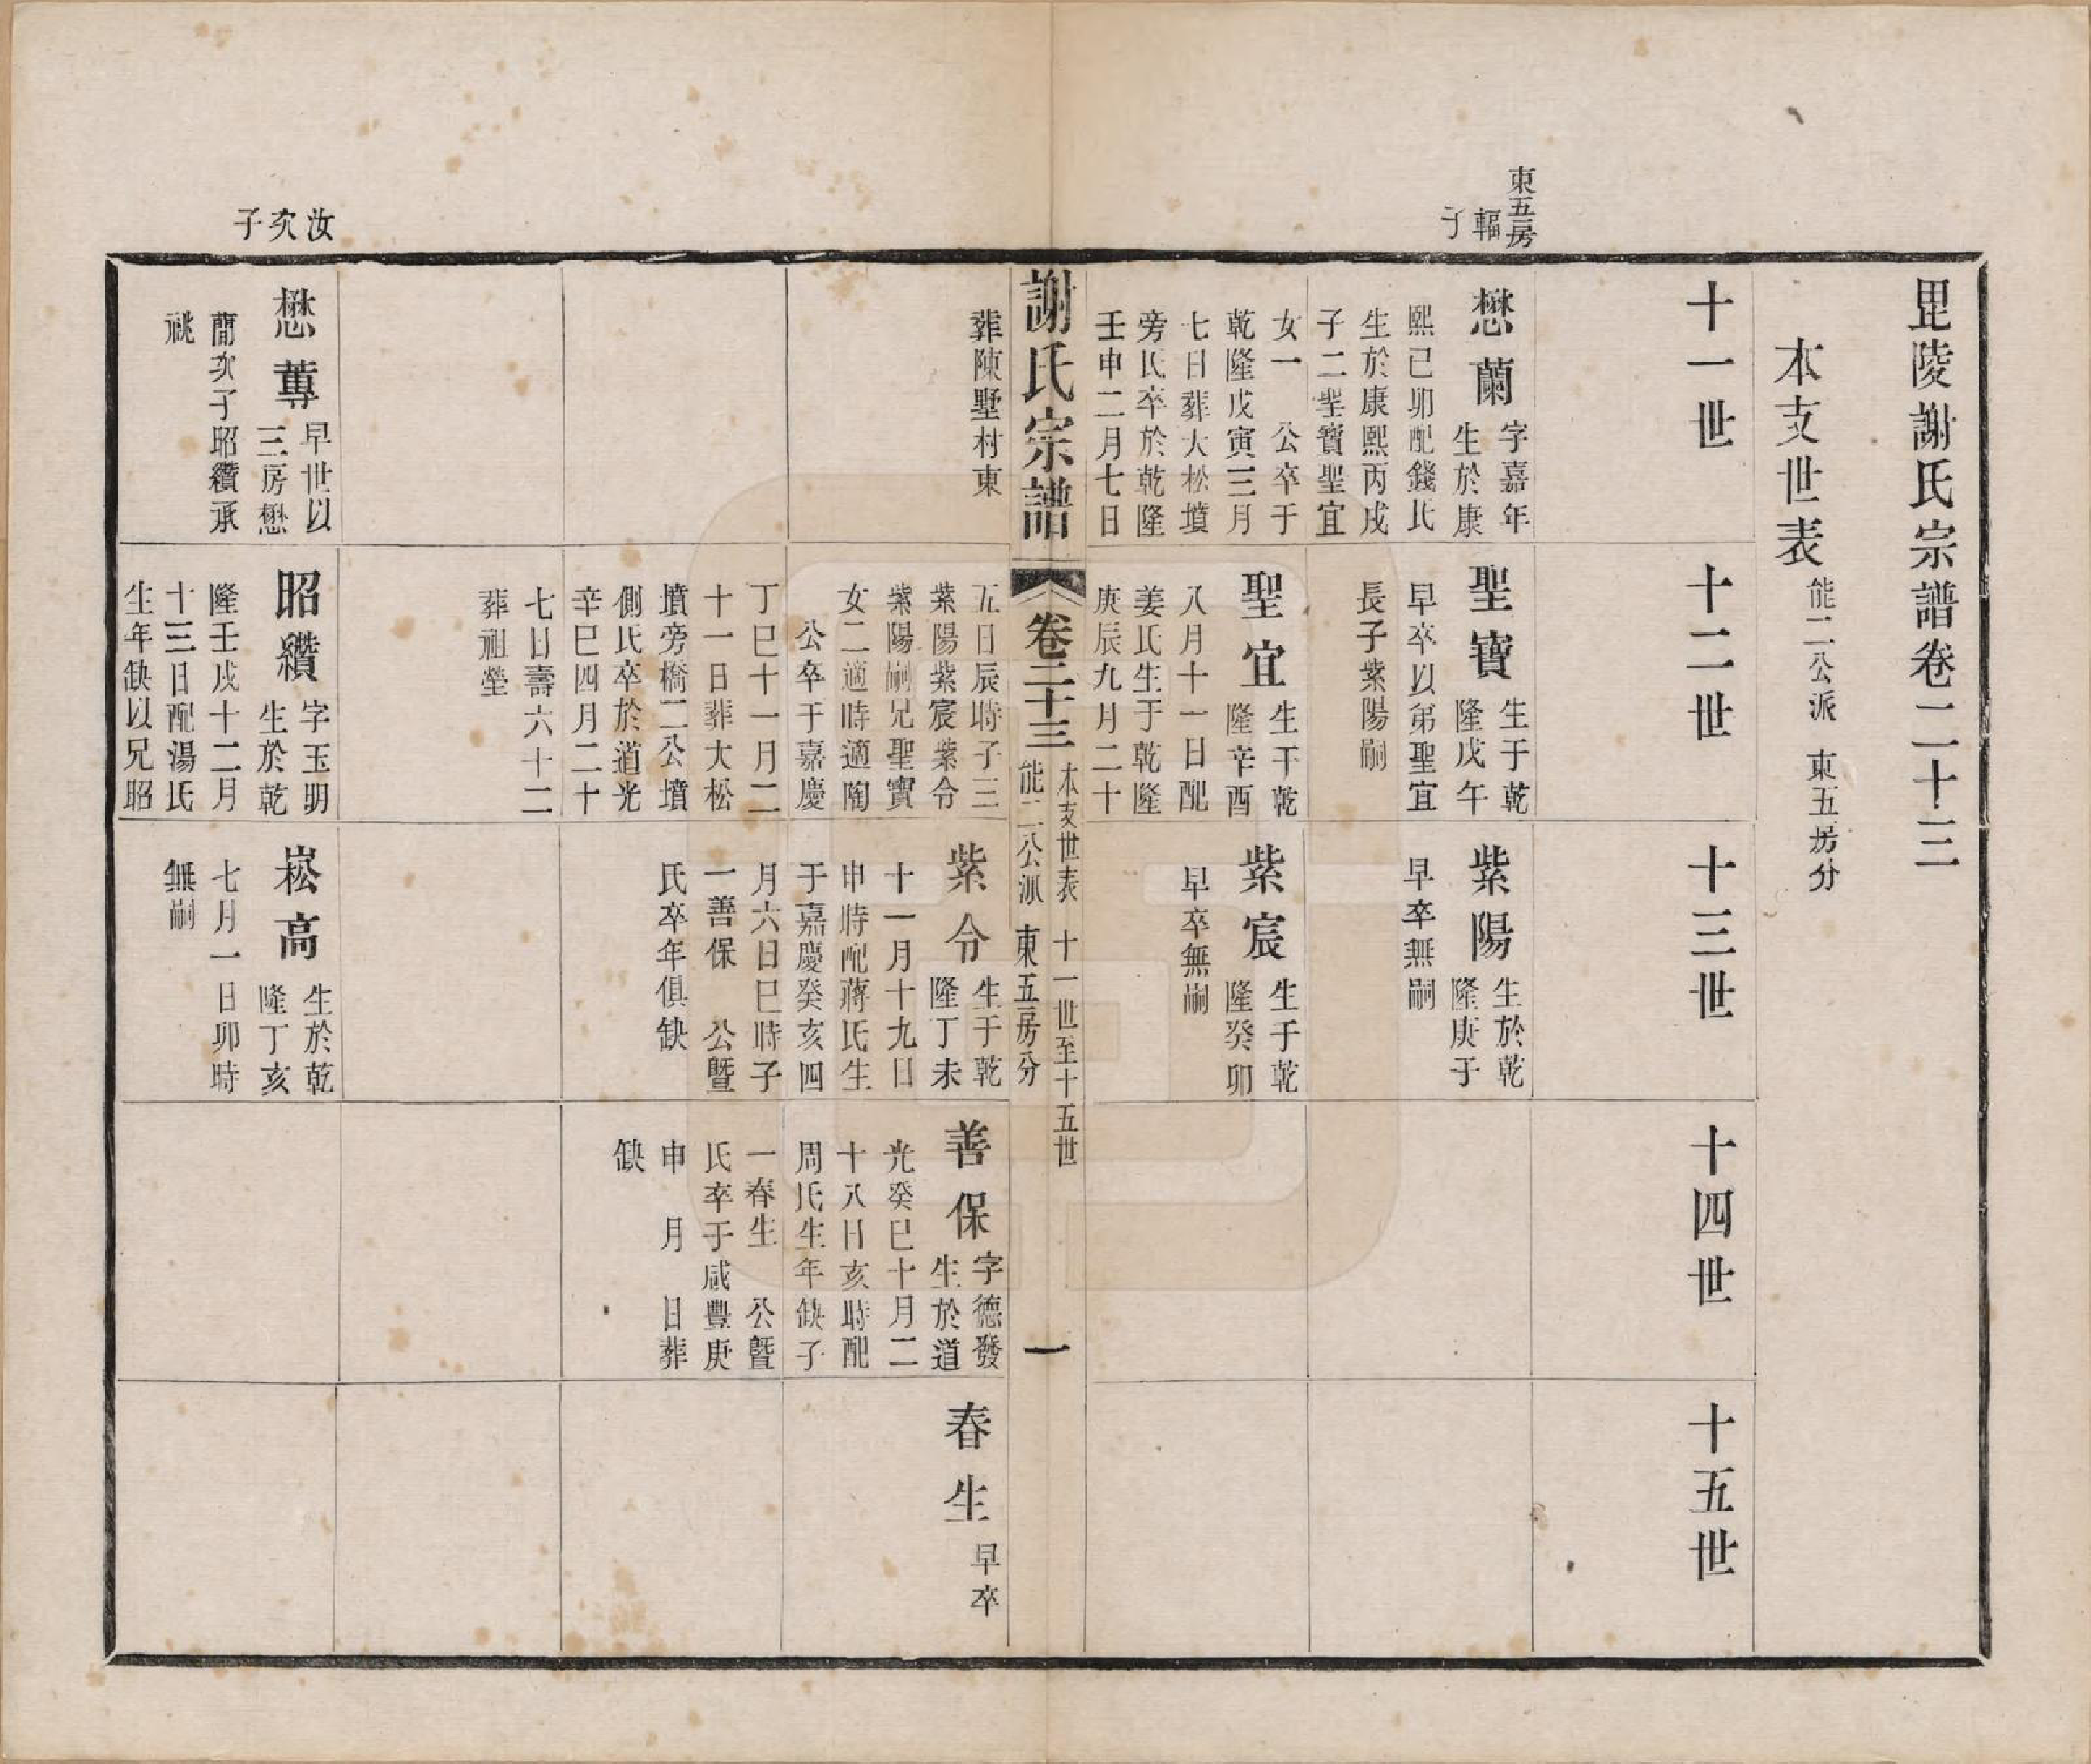 毘陵謝氏宗譜卷二十三
本支世表 能二公派 東五房分
十一世
十二世
十三世
十四世
十五世
東五房
輻子
懋蘭 字嘉年
生於康
熙己卯配錢氏
生於康熙丙戌
子二聖寶聖宜
女一 公卒于
乾隆戊寅三月
七日葬大松墳
旁氏卒於乾隆
壬申二月七日
聖寶 生于乾
隆戊午
早卒以弟聖宜
長子紫陽嗣
聖宜 生于乾
隆辛酉
八月十一日配
姜氏生于乾隆
庚辰九月二十
紫陽 生於乾
隆庚子
早卒無嗣
紫宸 生于乾
隆癸卯
早卒無嗣
謝氏宗譜
卷二十三
本支世表 十一世至十五世
能二公派 東五房分
一
葬陳墅村東
五日辰時子三
紫陽紫宸紫令
紫陽嗣兄聖寶
女二適時適陶
公卒于嘉慶
丁巳十一月二
十一日葬大松
墳旁橋二公墳
側氏卒於道光
辛巳四月二十
七日壽六十二
葬祖塋
紫令 生于乾
隆丁未
十一月十九日
申時配蔣氏生
于嘉慶癸亥四
月六日巳時子
一善保 公暨
氏卒年俱缺
善保 字德發
生於道
光癸巳十月二
十八日亥時配
周氏生年缺子
一春生 公暨
氏卒于咸豐庚
申 月 日葬
缺
春生 早卒
汝次子
懋蓴 早世以
三房懋
蕳次子昭纘承
祧
昭纘 字玉明
生於乾
隆壬戌十二月
十三日配湯氏
生年缺以兄昭
崧高 生於乾
隆丁亥
七月一日卯時
無嗣